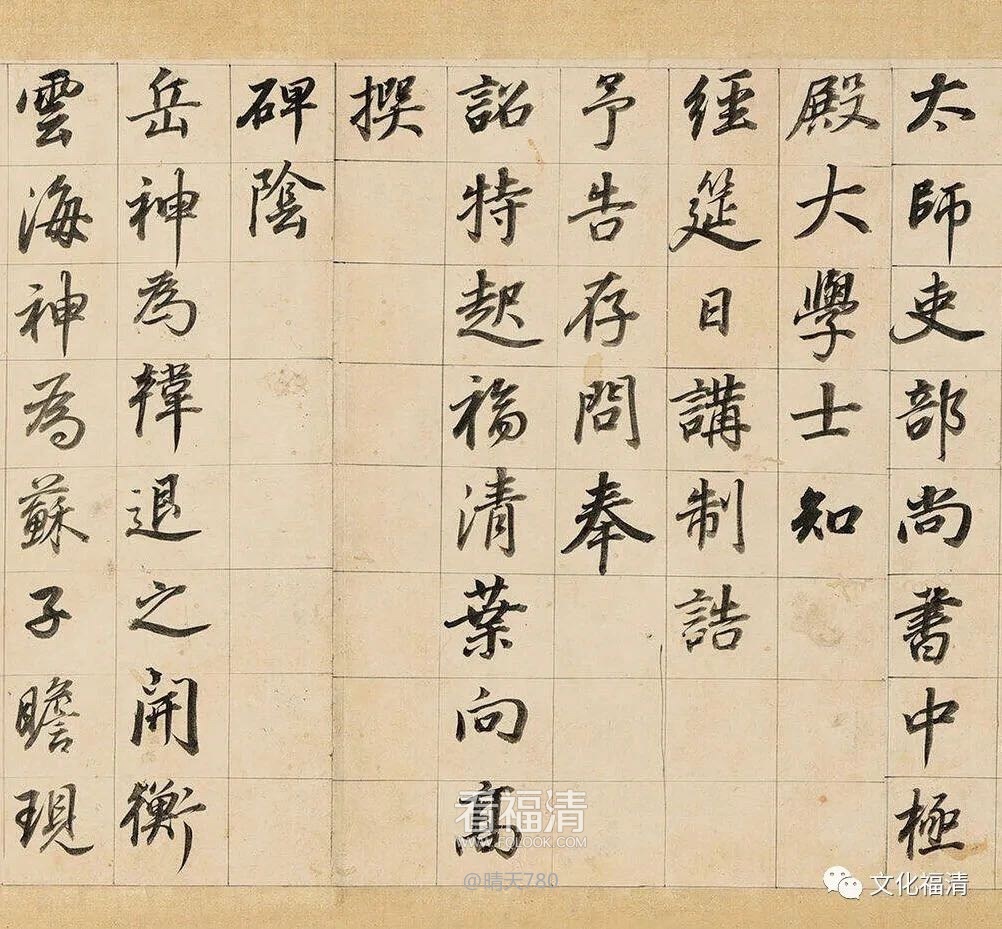 太師吏部尚書中極
殿大學士知
經筵日講制誥
予告存問奉
詔特起福清葉向高
撰
碑陰
岳神為韓退之開衡
雲海神為蘇子瞻現
看福清
WWW.FQLOOK.COM
@晴天780
文化福清